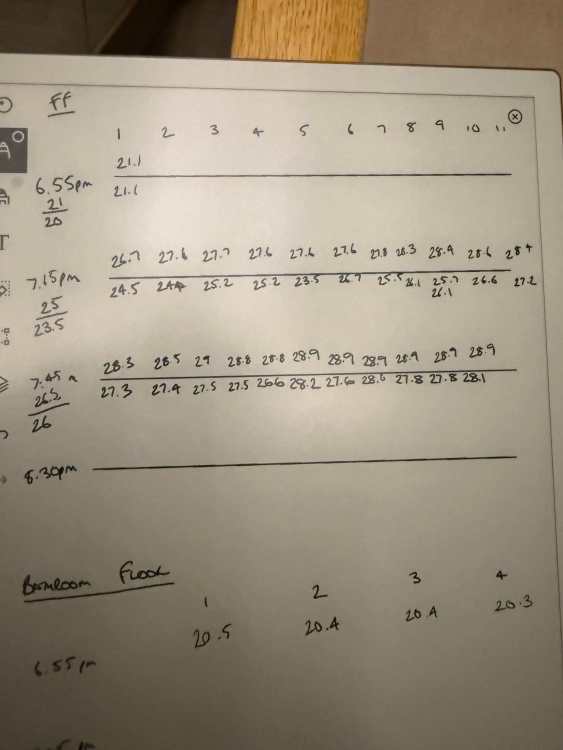 FF
1 2 3 4 5 6 7 8 9 10 11
21.1
6.55pm 21.1
21
20
26.7 27.6 27.7 27.6 27.6 27.6 27.8 28.3 28.4 28.6 28
7.15pm 24.5 25.2 25.2 23.5 26.7 25.5 26.1 25.7 26.6 27.2
25 26.1
23.5
28.3 28.5 29 28.8 28.8 28.9 28.9 28.9 28.9 28.9 28.9
7.45 27.3 27.4 27.5 27.5 26.6 28.2 27.6 28.6 27.8 27.8 28.1
26.5
26
8.30pm
Bathroom Floor
1 2 3 4
20.5 20.4 20.4 20.3
6.55pm